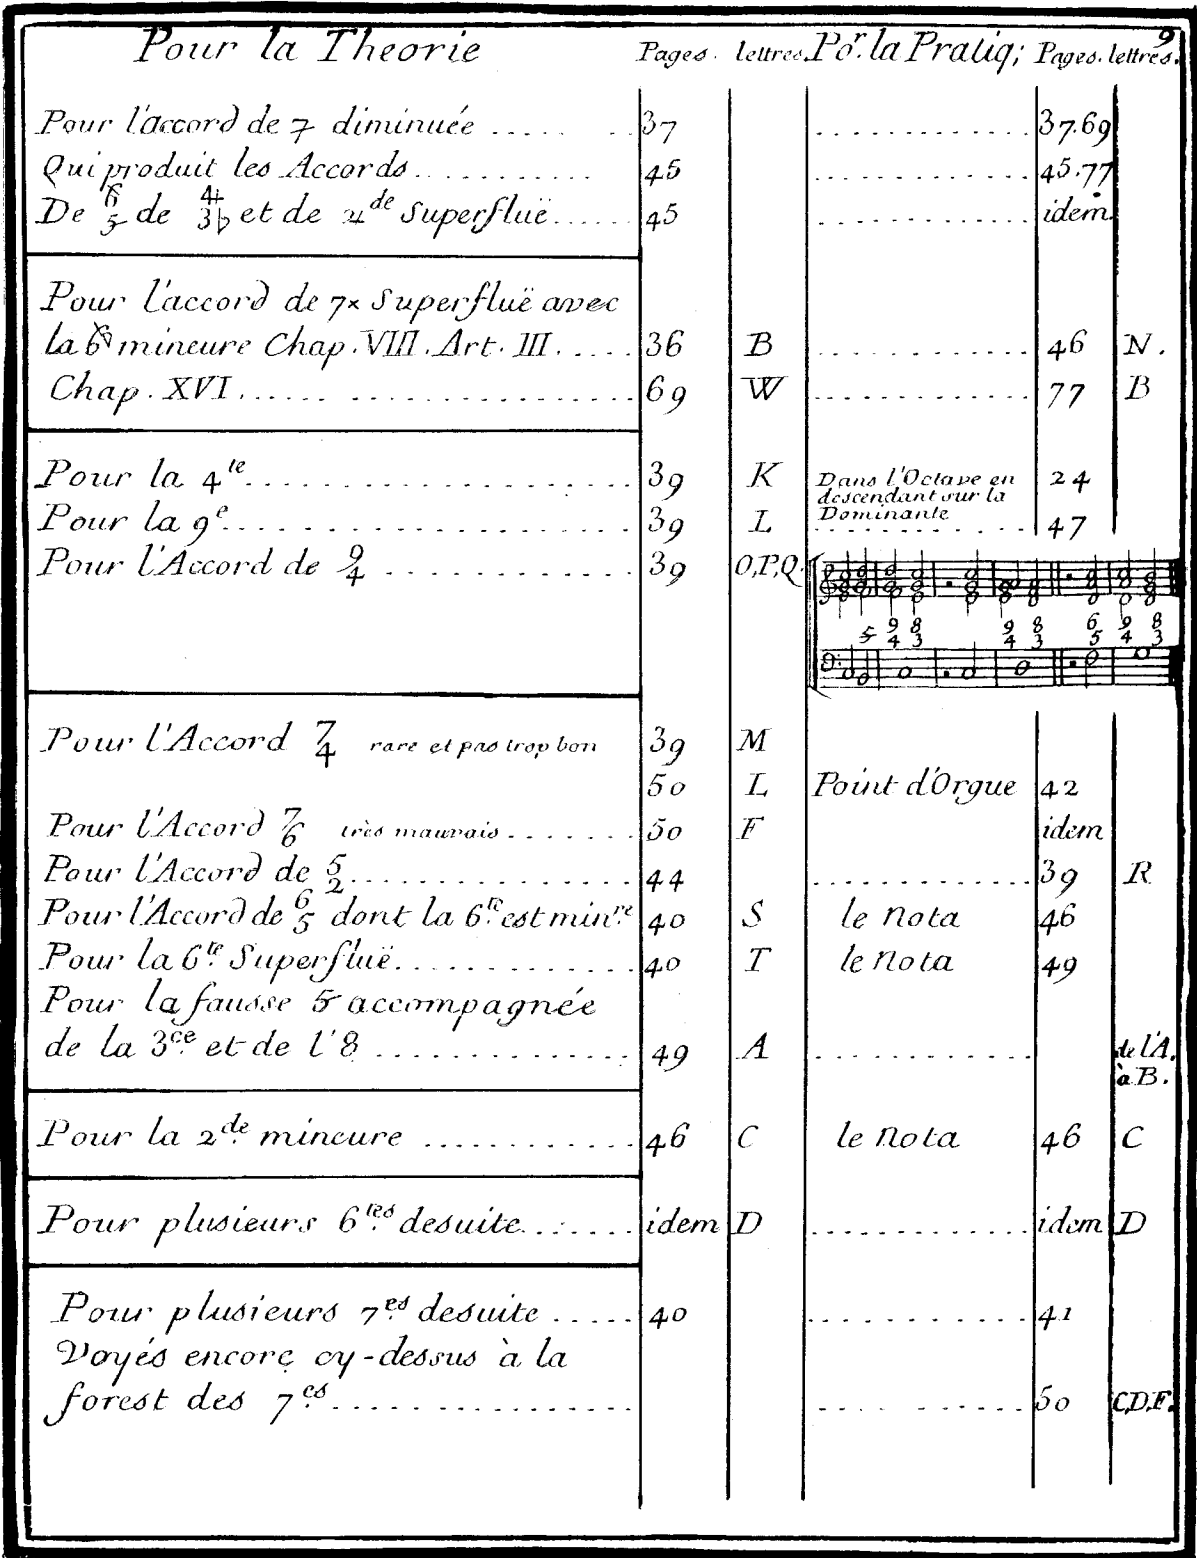 9
Pour la Theorie Pages. lettres. Po.r la Pratiq; Pages. lettres.
Pour l'accord de 7 diminuée ..... 37 ............. 37.69
Qui produit les Accords ............ 45 ............. 45.77
De 6/5 de 4+/3♭ et de 2de Superfluë ...... 45 ............. idem.
Pour l'accord de 7x Superfluë avec
la 6 mineure Chap. VIII. Art. III. ..... 36 B ............. 46 N.
Chap. XVI. ................ 69 W ............. 77 B
Pour la 4te ................ 39 K Dans l'Octave en 24
descendant sur la
Pour la 9e ................ 39 L Dominante ............. 47
Pour l'Accord de 9/4 ............. 39 O,P,Q.
5 9/4 8/3 9/4 8/3 6/5 9/4 8/3
Pour l'Accord 7/4 rare et pas trop bon 39 M
50 L Point d'Orgue 42
Pour l'Accord 7/6 très mauvais ....... 50 F idem
Pour l'Accord de 5/2 ................ 44 ............. 39 R
Pour l'Accord de 6/5 dont la 6.te est min.re 40 S le Nota 46
Pour la 6.te Superfluë ............. 40 T le Nota 49
Pour la fausse 5 accompagnée
de la 3.ce et de l'8 ............... 49 A ............. de l'A.
à B.
Pour la 2.de mineure ............ 46 C le Nota 46 C
Pour plusieurs 6.tes desuite ....... idem D ............. idem D
Pour plusieurs 7.es desuite ..... 40 ............. 41
Voyés encore cy-dessus à la
forest des 7.es ................ ............. 50 C,D,F.